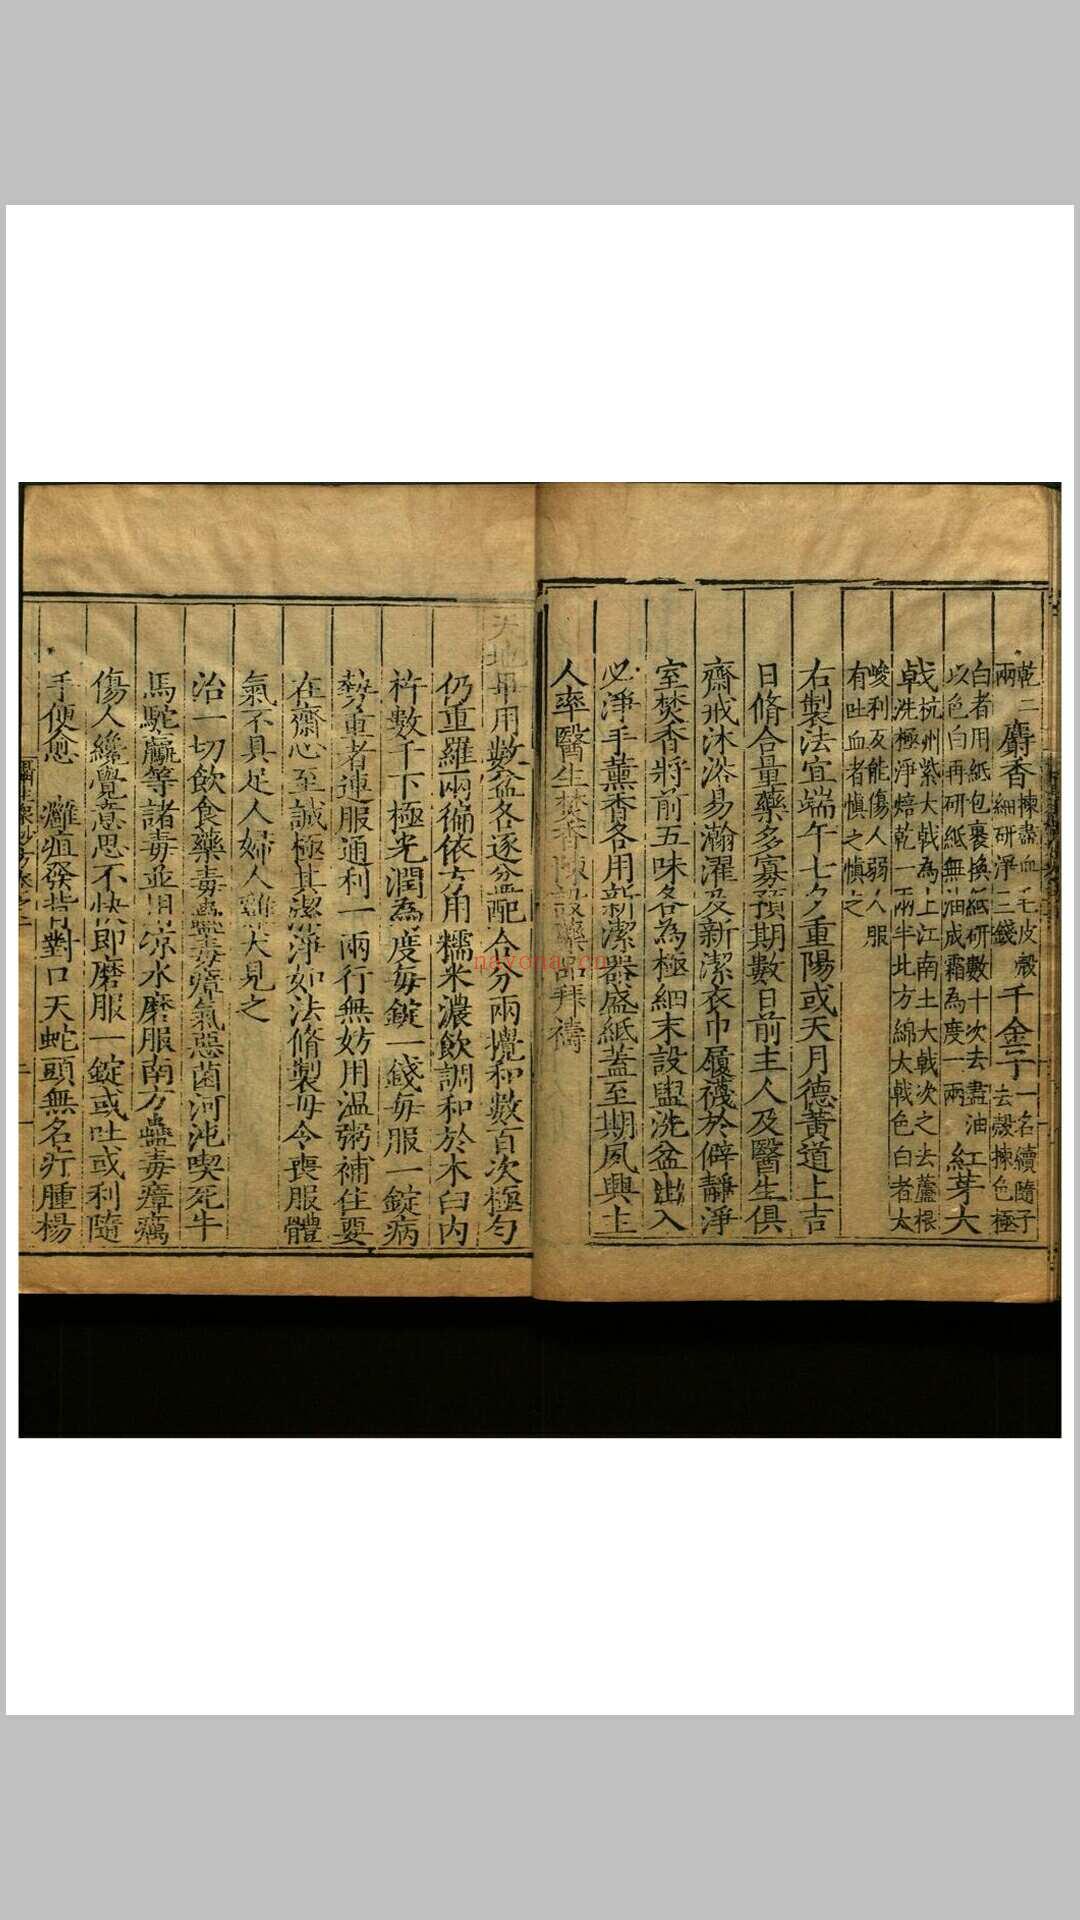 乾二兩 麝香揀盡血毛皮殼細研淨三錢 千金子一名續隨子去殼揀色極
白者用紙包裹換紙研數十次去盡油以色白再研紙無油成霜為度一兩 紅芽大
戟杭州紫大戟為上江南土大戟次之去蘆根卓洗極淨焙乾一兩半北方綿大戟色白者太
峻利及能傷人弱人服有吐血者慎之慎之
右製法宜端午七夕重陽或天月德黃道上吉
日脩合量藥多寡預期數日前主人及醫生俱
齋戒沐浴易瀚濯及新潔衣巾履襪於僻靜淨
室焚香將前五味各為極細末設盥洗盆出入
必淨手薰香各用新潔器盛紙蓋至期夙興主
人率醫生焚香陳設藥品拜禱
天地畢用數盆各逐分配合分兩攪和數百次極勻
仍重羅兩徧依方用糯米濃飲調和於木臼內
杵數千下極光潤為度每錠一錢每服一錠病
勢重者連服通利一兩行無妨用温粥補住要
在齋心至誠極其潔淨如法脩製毋令喪服體
氣不具足人婦人雞犬見之
治一切飲食藥毒蠱毒瘴氣惡菌河沌喫死牛
馬駝驘等諸毒並用凉水磨服南方蠱毒瘴癘
傷人纔覺意思不快即磨服一錠或吐或利隨
手便愈 癰疽發背對口天蛇頭無名疔腫楊
nayona.cn